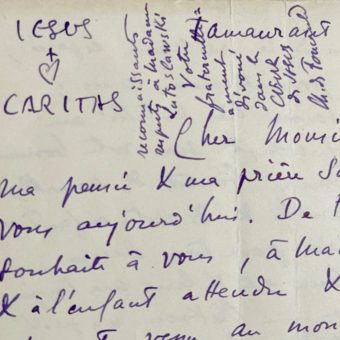 IESUS
+
♡
CARITAS
Tamanrasset
reconnaissants
respects à Madame
Lutoslawski
Votre
fraternellement
dévoué
dans le
CŒUR
de JESUS
Cher Monsie
ma pensée & ma prière so
vous aujourd'hui. De
souhaite à vous, à Mad
& à l'enfant attendu &
venu au mon